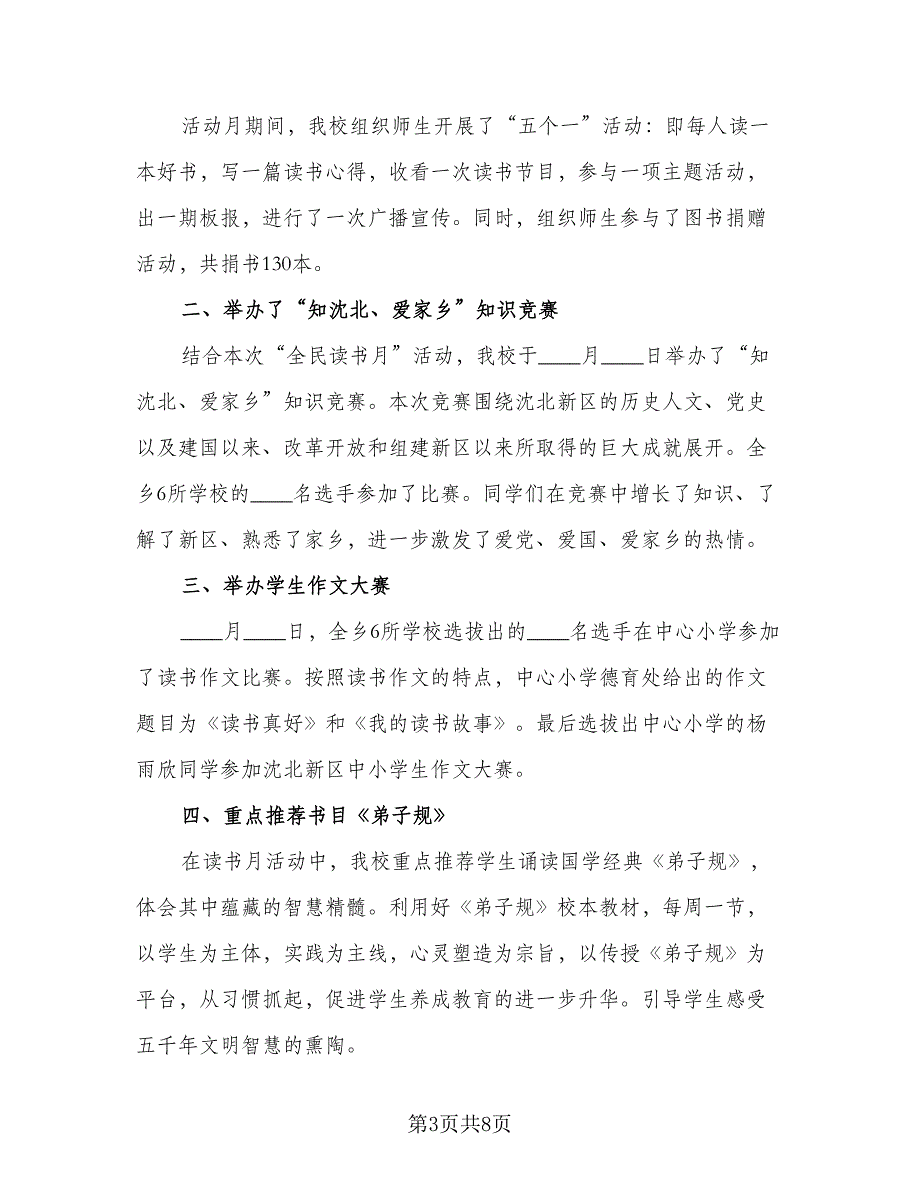 活动月期间，我校组织师生开展了“五个一”活动：即每人读一
本好书，写一篇读书心得，收看一次读书节目，参与一项主题活动，
出一期板报，进行了一次广播宣传。同时，组织师生参与了图书捐赠
活动，共捐书130本。
二、举办了“知沈北、爱家乡”知识竞赛
结合本次“全民读书月”活动，我校于____月____日举办了“知
沈北、爱家乡”知识竞赛。本次竞赛围绕沈北新区的历史人文、党史
以及建国以来、改革开放和组建新区以来所取得的巨大成就展开。全
乡6所学校的____名选手参加了比赛。同学们在竞赛中增长了知识、了
解了新区、熟悉了家乡，进一步激发了爱党、爱国、爱家乡的热情。
三、举办学生作文大赛
____月____日，全乡6所学校选拔出的____名选手在中心小学参加
了读书作文比赛。按照读书作文的特点，中心小学德育处给出的作文
题目为《读书真好》和《我的读书故事》。最后选拔出中心小学的杨
雨欣同学参加沈北新区中小学生作文大赛。
四、重点推荐书目《弟子规》
在读书月活动中，我校重点推荐学生诵读国学经典《弟子规》，
体会其中蕴藏的智慧精髓。利用好《弟子规》校本教材，每周一节，
以学生为主体，实践为主线，心灵塑造为宗旨，以传授《弟子规》为
平台，从习惯抓起，促进学生养成教育的进一步升华。引导学生感受
五千年文明智慧的熏陶。
第3页共8页